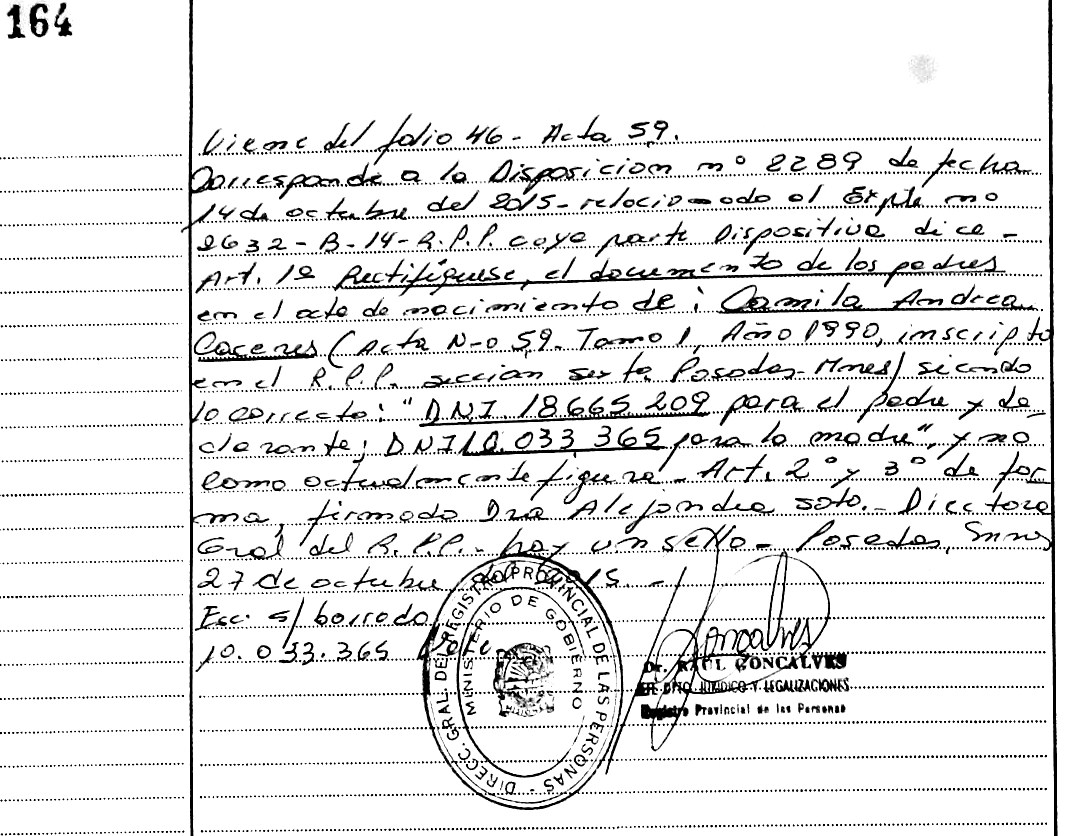 164
Viene del folio 46 - Acta 59.
Corresponde a la Disposicion nº 2289 de fecha
14 de octubre del 2015 - relacionado al Expte nº
2632 - B - 14 - R.P.P. cuya parte Dispositiva dice -
Art. 1º Rectifíquese, el documento de los padres
en el acta de nacimiento de: Camila Andrea
Caceres (Acta N-o 59. Tomo 1, Año 1990, inscripta
en el R.P.P. seccion sexta Posadas - Mnes) siendo
lo correcto: "DNI 18665 209 para el padre y de-
clarante; DNI 10.033 365 para la madre", y no
como actualmente figura - Art. 2º y 3º de for
ma, firmado Dra Alejandra Soto. - Directora
Gral del R.P.P. - hay un sello - Posadas, Mnes
27 de octubre del 2015. -
Esc. s/ borrado
10.033.365 Vale
DIRECC. GRAL. DEL REGISTRO PROVINCIAL DE LAS PERSONAS -
MINISTERIO DE GOBIERNO
Goncalves
Dr. RAUL GONCALVES
JEFE DPTO. JURIDICO Y LEGALIZACIONES
Registro Provincial de las Personas